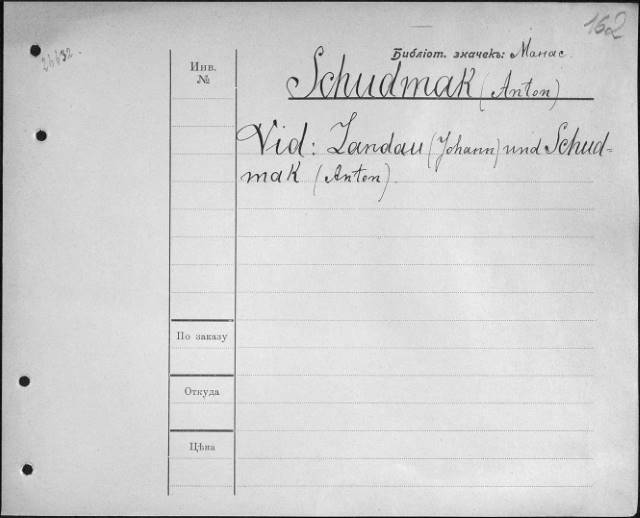 162
26632.
Библіот. значекъ: Манас.
Инв.
№
Schudmak (Anton)
Vid: Landau (Johann) und Schud=
mak (Anton).
По заказу
Откуда
Цѣна